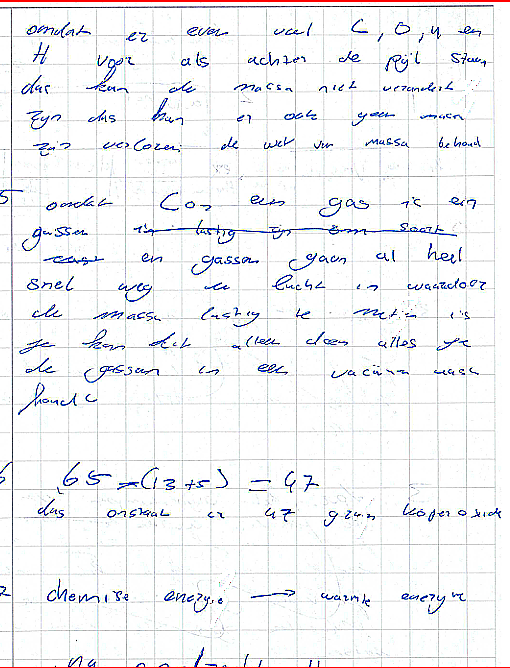 omdat er even veel C, O, N en
H voor als achter de pijl staan
dus kan de massa niet verandert
zijn dus kan er ook geen massa
zijn verloren de wet van massa behoud
5 omdat CO2 een gas is en
gassen is lastig zijn om soort
en gassen gaan al heel
snel weg de lucht in waardoor
de massa lastig te meten is
je kan dit alleen doen alles je
de gassen in een vacüum
houd
6 65 - (13 + 5) = 47
dus onstaat er 47 gram koperoxide
7 chemise energie → warmte energie